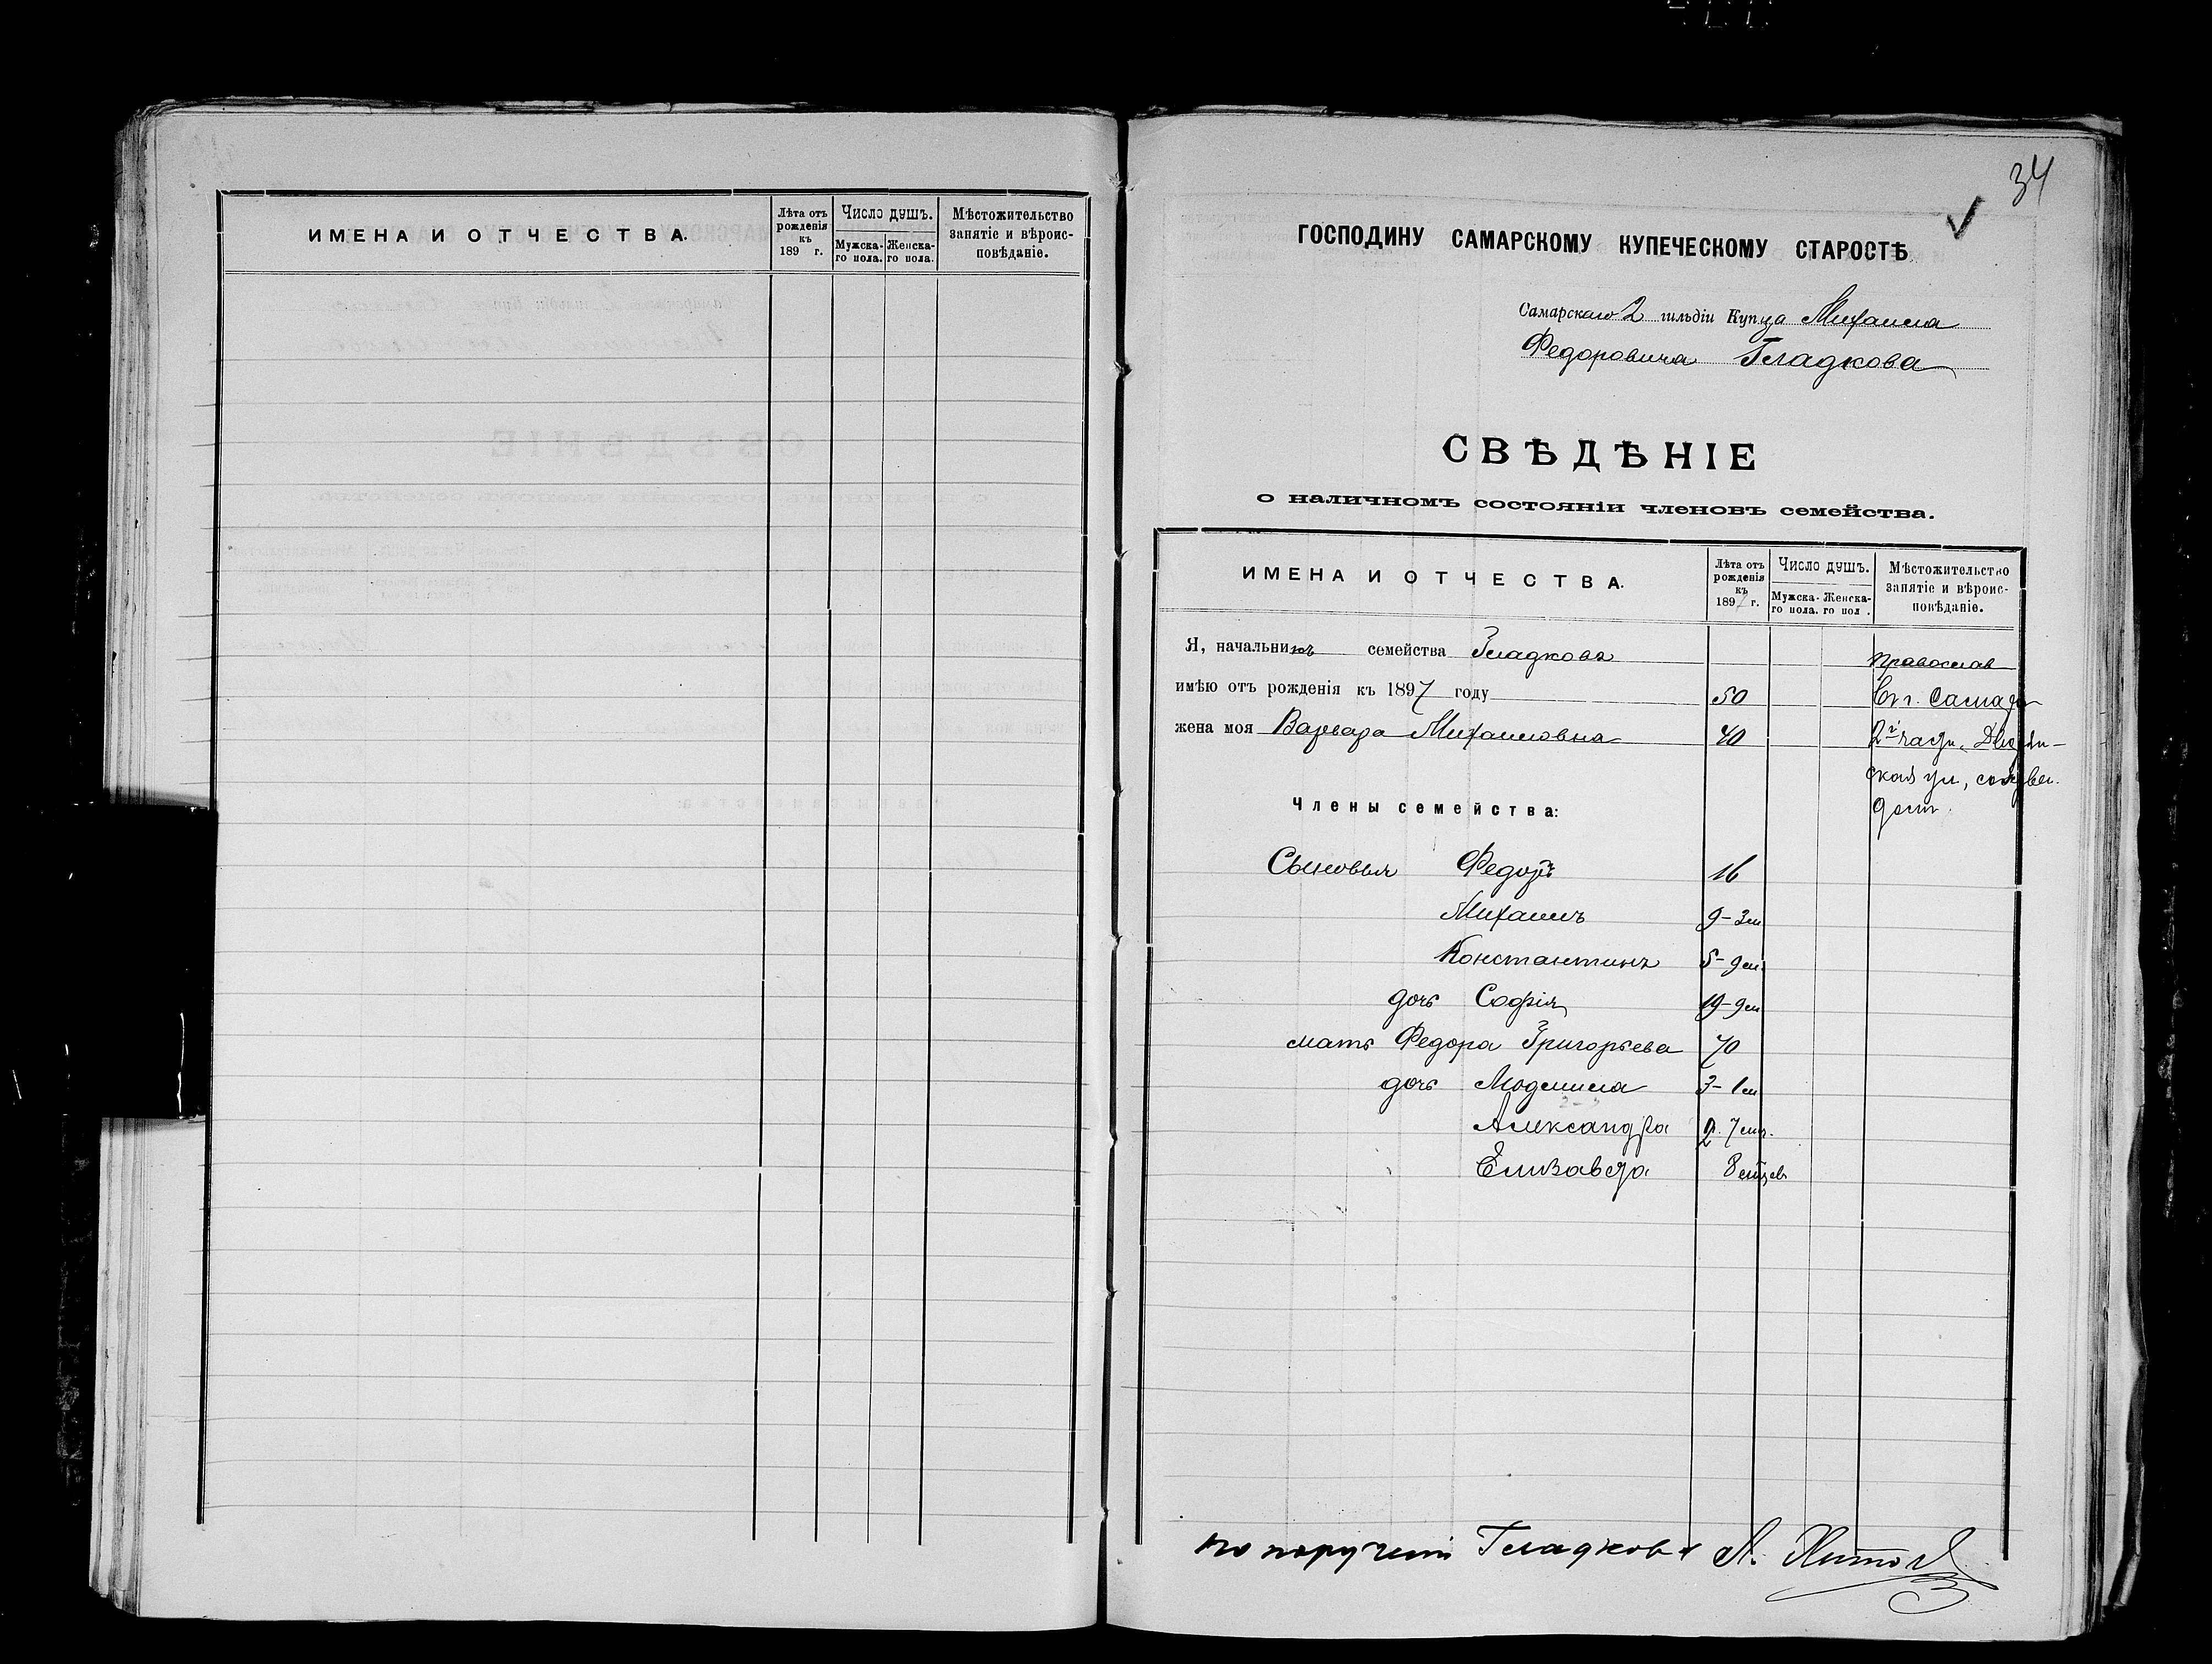 ИМЕНА И ОТЧЕСТВА.
Лѣта отъ рожденія къ 189 г.
Число душъ.
Мужска-го пола.
Женска-го пола.
Мѣстожительство занятіе и вѣроис-повѣданіе.
34
ГОСПОДИНУ САМАРСКОМУ КУПЕЧЕСКОМУ СТАРОСТѢ
Самарскаго 2 гильдіи Купца Михаила
Федоровича Гладкова
СВѢДѢНІЕ
о наличномъ состояніи членовъ семейства.
ИМЕНА И ОТЧЕСТВА.
Лѣта отъ рожденія къ 1897 г.
Число душъ.
Мужска-го пола.
Женска-го пол .
Мѣстожительство занятіе и вѣроис-повѣданіе.
Я, начальникъ семейства Гладковъ православ
имѣю отъ рожденія къ 1897 году 50 Въ г. Самарѣ
жена моя Варвара Михаиловна 40 2й части, Дворян-
ская ул,
дом.
Члены семейства:
Сыновья Федоръ 16
Михаилъ 9-3м
Константинъ 5-9м.
дочь Софія 19-9м
мать Федора Григорьева 70
дочь 3-1м
Александра 2. 7мц.
Елизавета 8 мцев
по порученію Гладкова А.